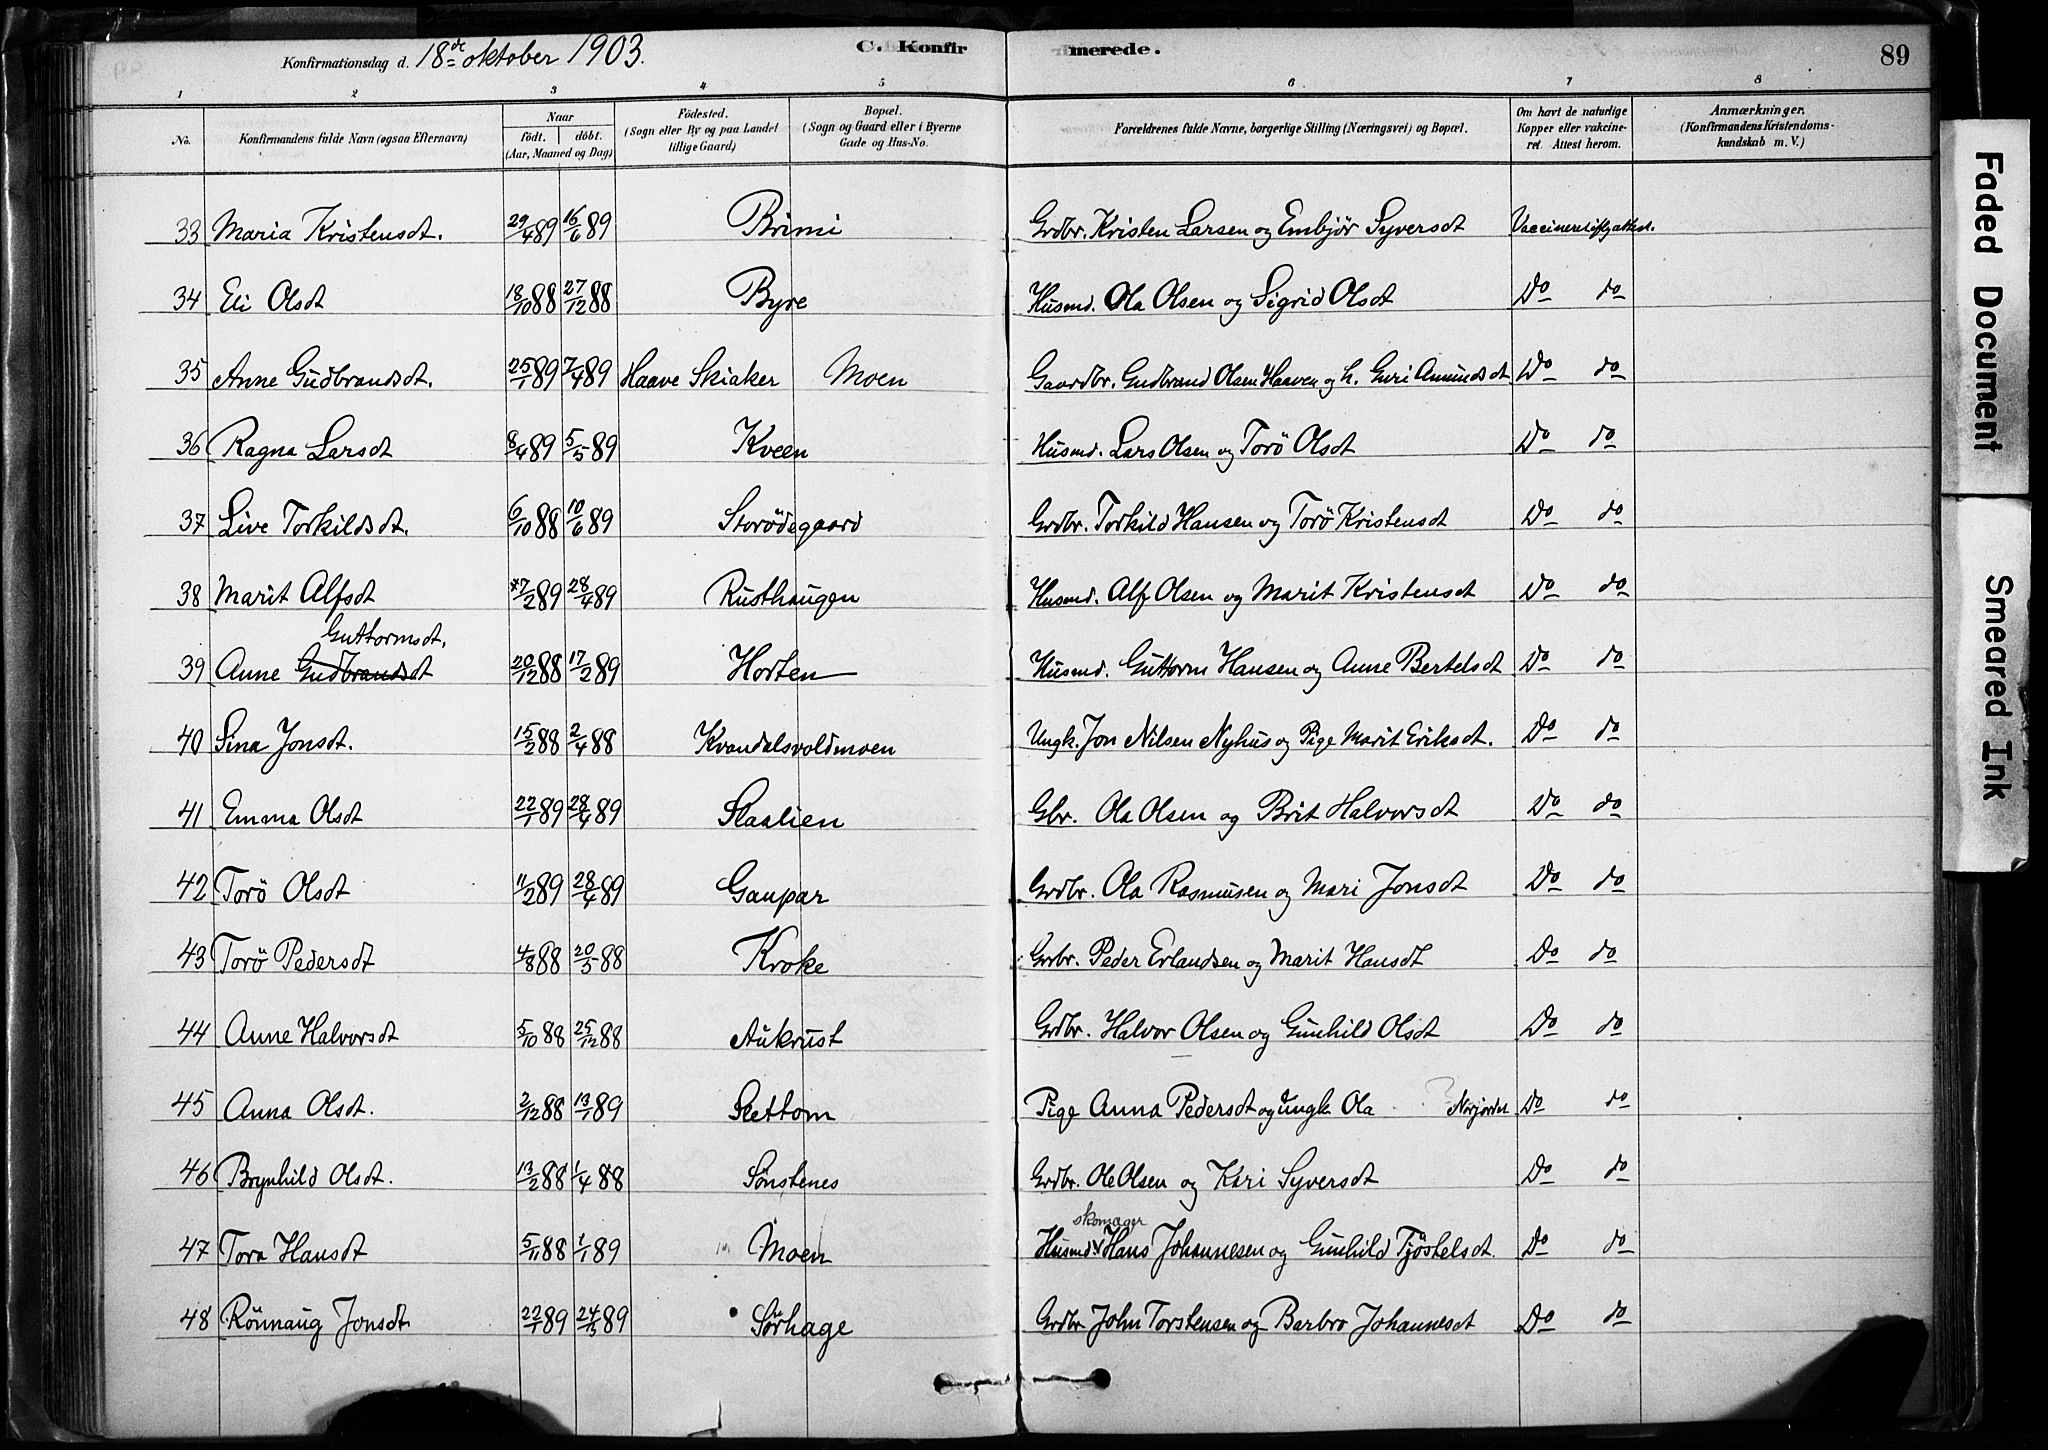 Konfirmationsdag d. 18de oktober 1903.
C. Konfirmerede.
89
1 2 3 4 5 6 7 8
No.
Konfirmandens fulde Navn (ogsaa Efternavn)
Naar
født. døbt.
(Aar, Maaned og Dag)
Fødested.
(Sogn eller By og paa Landet
tillige Gaard)
Bopæl.
(Sogn og Gaard eller i Byerne
Gade og Hus-No.
Forældrenes fulde Navne, borgerlige Stilling (Næringsvei) og Bopæl.
Om havt de naturlige
Kopper eller vakcine-
ret. Attest herom.
Anmærkninger.
(Konfirmandens Kristendoms-
kundskab m. V.)
33 Maria Kristensdt. 29/4 89 16/6 89 Brimi Grdbr. Kristen Larsen og Embjør Syversdt
34 Eli Olsdt 18/10 88 27/12 88 Byre Husmd. Ola Olsen og Sigrid Olsdt Do do
35 Anne Gudbrandsdt. 25/1 89 7/4 89 Haave Skiaker Moen Gaardbr. Gudbrand Olsen Haaven og h. Guri Amundsdt Do do
36 Ragna Larsdt 8/4 89 5/5 89 Kveen Husmd. Lars Olsen og Torö Olsdt Do do
37 Live Torkildsdt. 6/10 88 10/6 89 Storödegaard Grdbr. Torkild Hansen og Torö Kristensdt Do do
38 Marit Alfsdt 7/2 89 28/4 89 Rusthaugen Husmd. Alf Olsen og Marit Kristensdt Do do
Guttormsdt.
39 Anne Gudbrandsdt 20/12 88 17/2 89 Horten Husmd. Guttorm Hansen og Anne Bertelsdt Do do
40 Sina Jonsdt. 15/2 88 2/4 88 Kvandalsvoldmoen Ungk. Jon Nilsen Nyhus og Pige Marit Eriksdt. Do do
41 Emma Olsdt 22/1 89 28/4 89 Slaalien Gbr. Ola Olsen og Brit Halvorsdt Do do
42 Torö Olsdt 11/2 89 28/4 89 Gaupar Grdbr. Ola Rasmusen og Mari Jonsdt Do do
43 Torö Pedersdt 4/8 88 20/5 88 Kroke Grbr. Peder Erlandsen og Marit Hansdt Do do
44 Anne Halvorsdt 5/10 88 25/12 88 Aukrust Grdbr. Halvor Olsen og Gunhild Olsdt Do do
45 Anna Olsdt. 2/12 88 13/1 89 Slettom Pige Anna Pedersdt og Ungk. Ola Do do
46 Brynhild Olsdt. 13/2 88 1/4 88 Sönstenes Grdbr. Ole Olsen og Kari Syversdt Do do
skomager
47 Tora Hansdt 5/11 88 1/1 89 Moen Husmd. Hans Johannesen og Gunhild Tjöstelsdt. Do do
48 Rönnaug Jonsdt 22/1 89 24/3 89 Sörhage Grdbr. John Torstensen og Barbro Johannesdt Do do
Faded Document
Smeared Ink